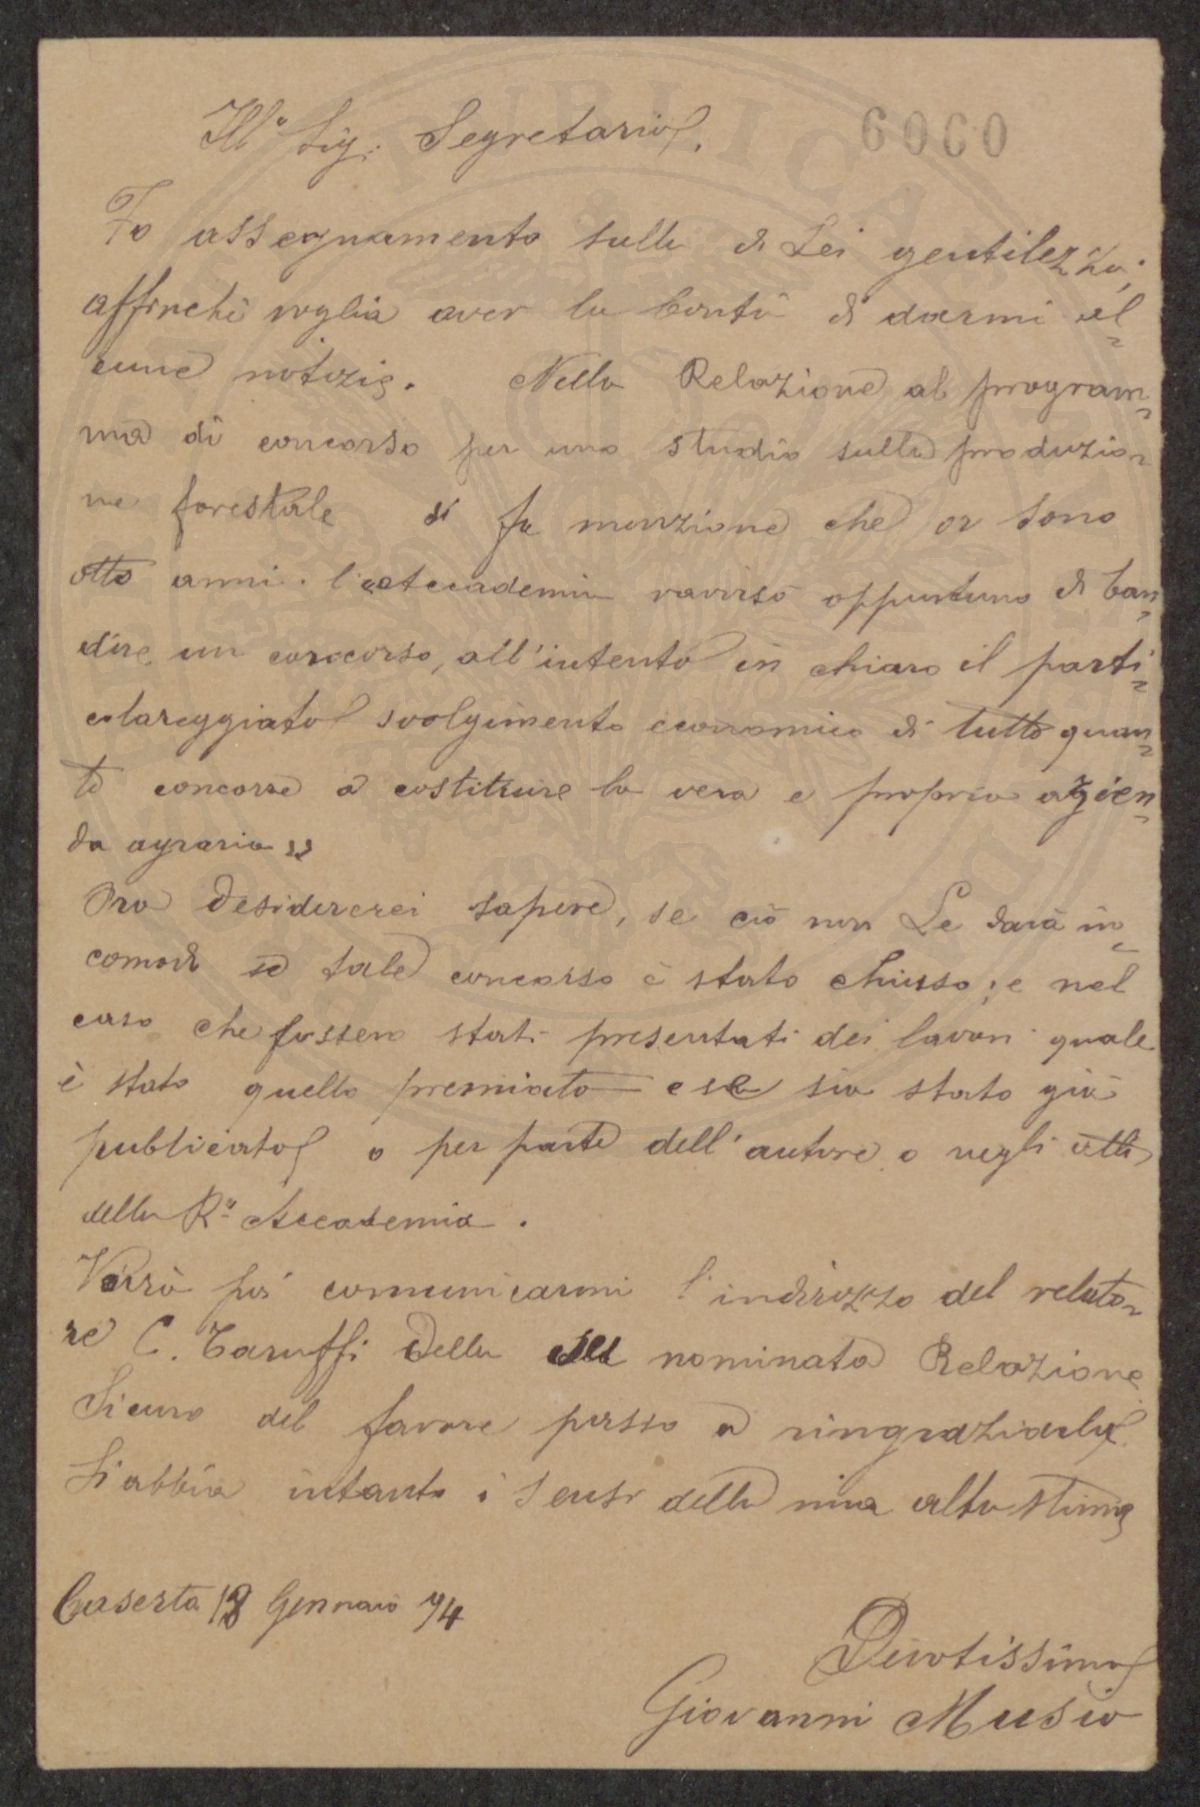 Ill.° Sig. Segretario,
6060
Fo assegnamento sulla di Lei gentilezza,
affinchè voglia aver la bontà di darmi al=
cune notizie. Nella Relazione al program=
ma di concorso per uno studio sulla produzio=
ne forestale si fa menzione che or sono
otto anni l'Accademia ravvisò opportuno di ban=
dire un concorso, all'intento in chiaro il parti=
colareggiato svolgimento economico di tutto quan=
to concorre a costituire la vera e propria azien=
da agraria „
Ora desidererei sapere, se ciò non Le darà in=
comodo se tale concorso è stato chiuso; e nel
caso che fossero stati presentati dei lavori quale
è stato quello premiato e se sia stato già
publicato o per parte dell'autore o negli atti
della R.ª Accademia.
Vorrà poi comunicarmi l'indirizzo del relato=
re C. Taruffi della nominata Relazione
Sicuro del favore passo a ringraziarla
Si abbia intanto i sensi della mia alta stima
Caserta 18 Gennaio 94
Devotissimo
Giovanni Musio